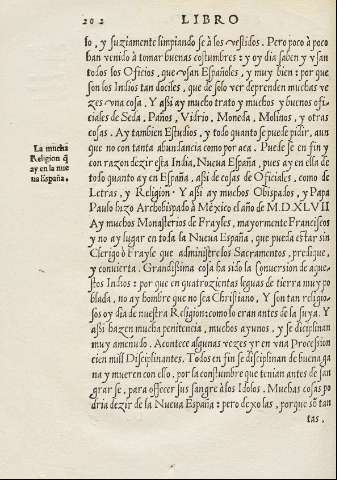 202 LIBRO
lo, y suziamente limpiando se à los vestidos. Pero poco à poco
han venido à tomar buenas costumbres: y oy dia saben y vsan
todos los Oficios, que vsan Españoles, y muy bien: por que
son los Indios tan dociles, que de solo ver deprenden muchas ve
zes vna cosa. Y assi ay mucho trato y muchos y buenos ofi,
ciales de Seda, Paños, Vidrio, Moneda, Molinos, y otras
cosas. Ay tambien Estudios, y todo quanto se puede pidir, aun
que no con tanta abundancia como por aca. Puede se en fin y
La mucha
Religion q̃
ay en la nue
ua España.
con razon dezir esta India, Nueua España, pues ay en ella de
todo quanto ay en España, assi de cosas de Oficiales, como de
Letras, y Religion. Y assi ay muchos Obispados, y Papa
Paulo hizo Archobispado à México el año de M.D.XLVII
Ay muchos Monasterios de Frayles, mayormente Franciscos
y no ay lugar en toda la Nueua España, que pueda estar sin
Clerigo ò Frayle que administre los Sacramentos, predique,
y conuierta. Grandissima cosa ha sido la conuersion de aque,
stos Indios: por que en quatrozientas leguas de tierra muy po
blada, no ay hombre que no sea Christiano, Y son tan religio,
sos oy dia de nuestra Religion: como lo eran antes de la suya. Y
assi hazen mucha penitencia, muchos ayunos, y se diciplinan
muy amenudo. Acontece algunas vezes yr en vna Procession
cien mill Disciplinantes. Todos en fin se disciplinan de buena ga
na y mueren con ello, por la constumbre que tenian antes de san
grar se, para offecer sus sangre à los Idolos. Muchas cosas po
dria dezir de la Nueua España: pero dexolas, porque sõ tan
tas,